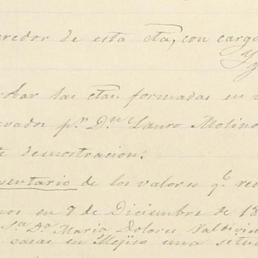 eedor de esta cta, con carg
obar las ctas. formadas en
vador pr. Dn. Lauro Molino
te demostracion:
ventario de los valores qe. re
nos en 7 de Diciembre de 18
Sra. Da. Maria Dolores Valdivi
casas en Mejico una situ